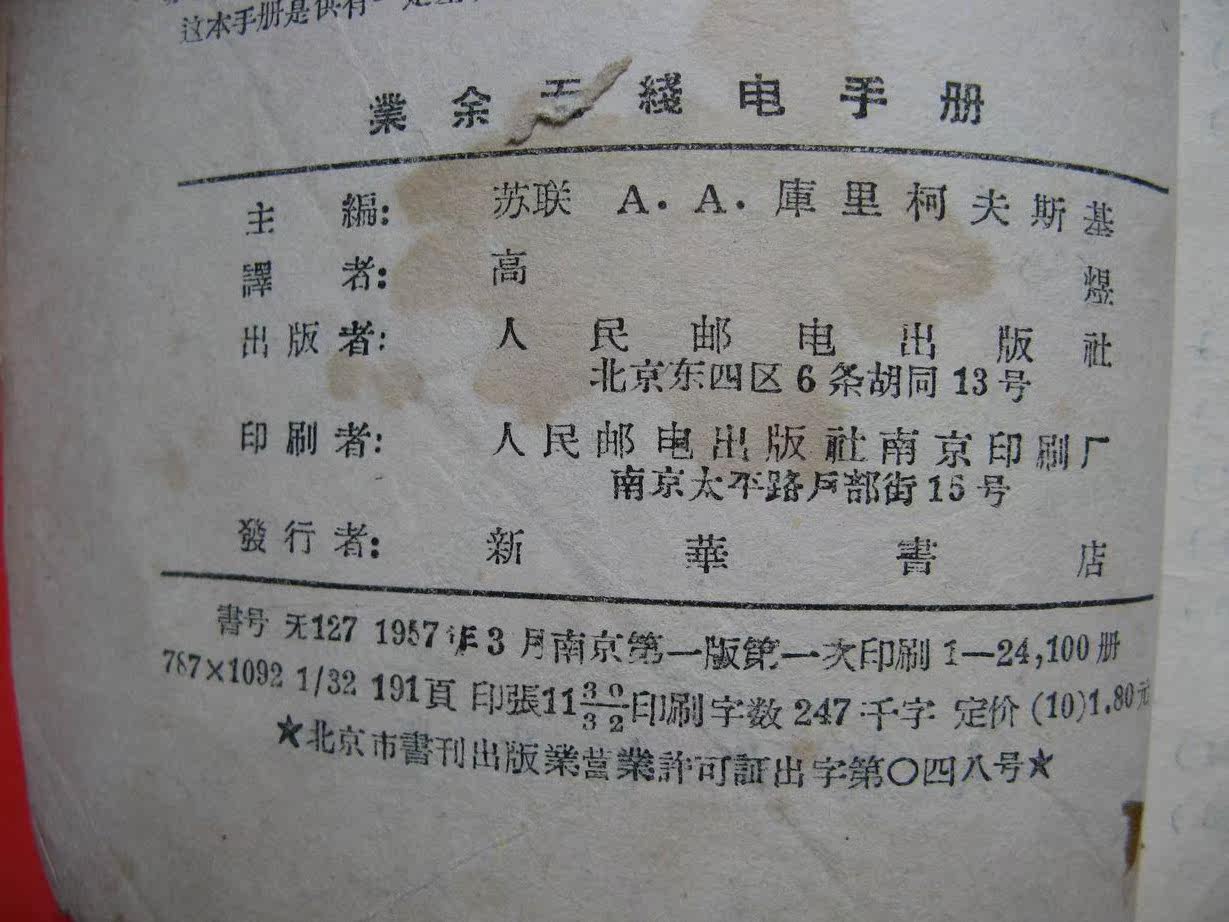 这本手册是供有一定
業余无綫电手册
主編: 苏联 A. A. 庫里柯夫斯基
譯者: 高煜
出版者: 人民邮电出版社
北京东四区 6 条胡同 13 号
印刷者: 人民邮电出版社南京印刷厂
南京太平路户部街 15 号
發行者: 新華書店
書号 无127 1957年3月南京第一版第一次印刷 1—24,100 册
787×1092 1/32 191頁 印張11 30/32 印刷字数 247 千字 定价 (10)1.80元
★北京市書刊出版業营業許可証出字第〇四八号★